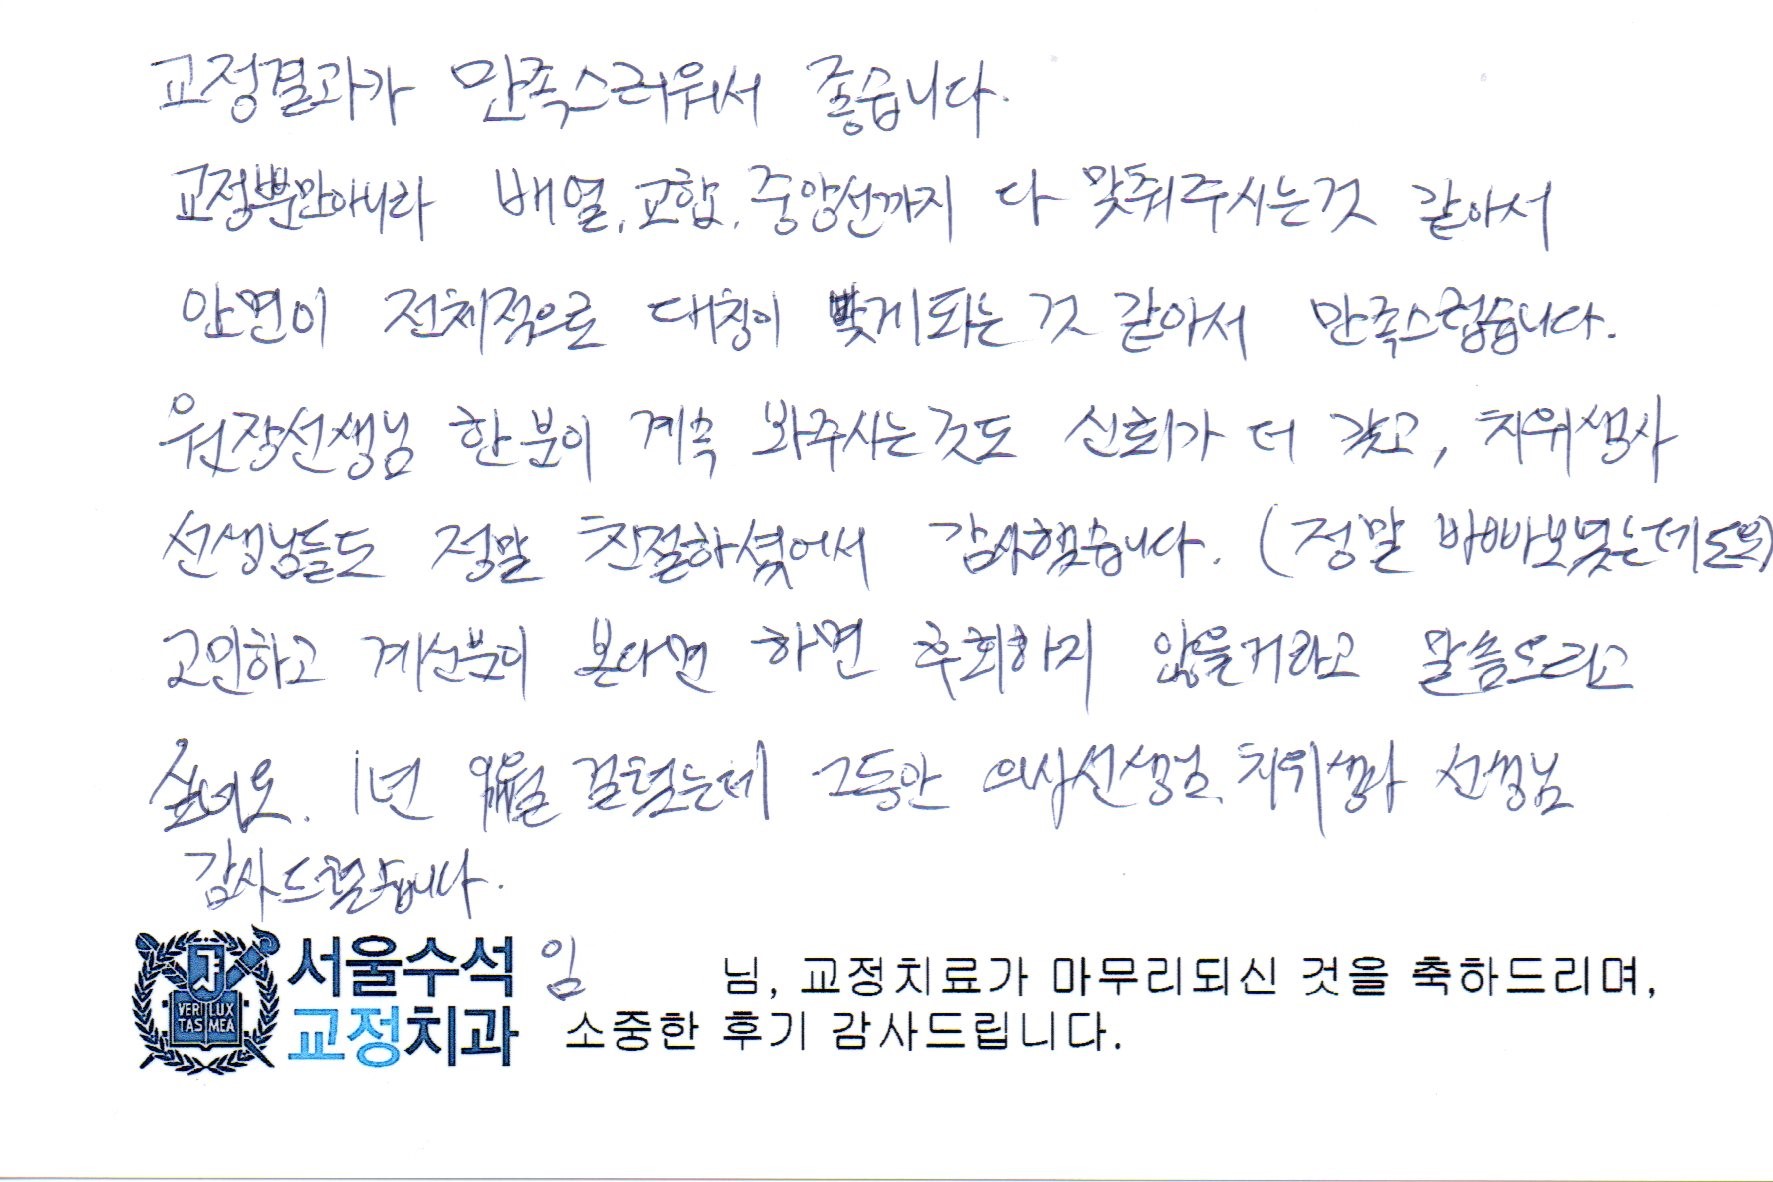 교정결과가 만족스러워서 좋습니다.
교정뿐만아니라 배열, 교합, 중앙선까지 다 맞춰주시는것 같아서
안면이 전체적으로 대칭이 맞게되는 것 같아서 만족스럽습니다.
원장선생님 한분이 계속 봐주시는것도 신뢰가 더 갔고, 치위생사
선생님들도 정말 친절하셨어서 감사했습니다. (정말 바빠보였는데도요)
고민하고 계신분이 본다면 하면 후회하지 않을거라고 말씀드리고
싶네요. 1년 걸렸는데 그동안 의사선생님, 치위생사 선생님
감사드렸습니다.
VERI LUX
TAS MEA
서울수석
교정치과
임 님, 교정치료가 마무리되신 것을 축하드리며,
소중한 후기 감사드립니다.